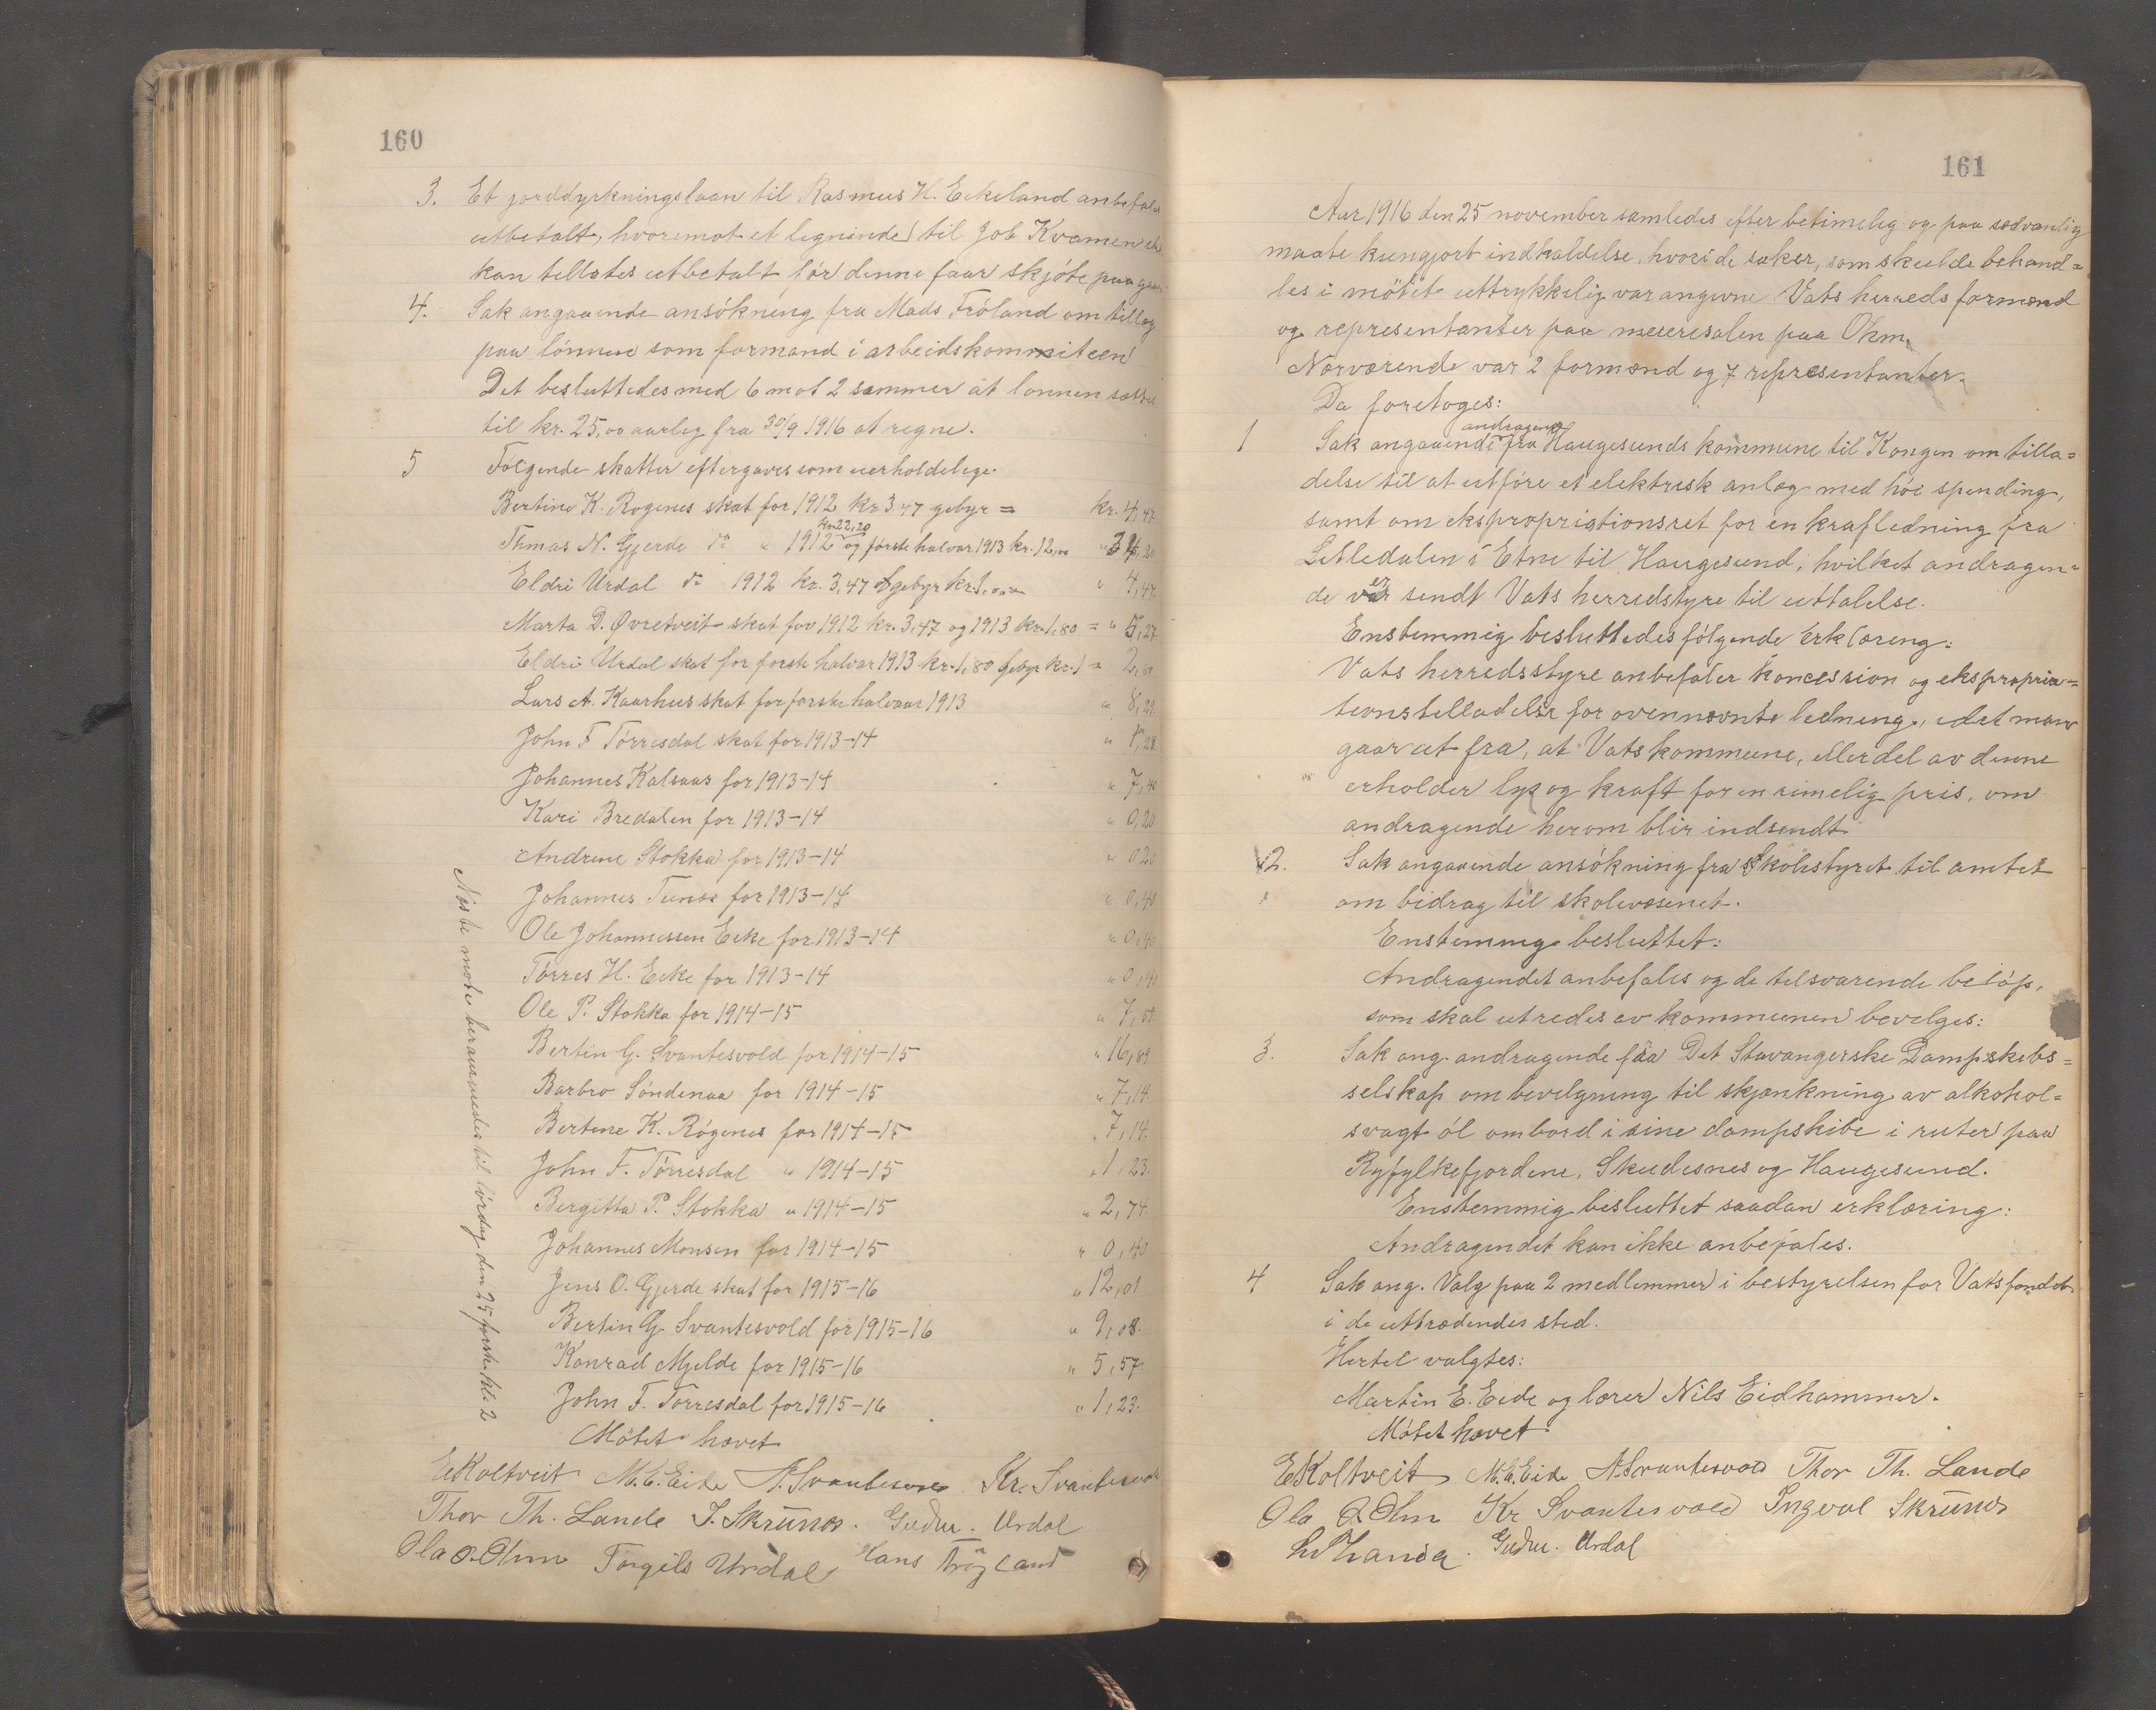 160
3. Et jorddyrkningslaan til Rasmus H. Eikeland anbefales
utbetalt, hvorimot et lignende til Job Kvamen ei
kan tillates utbetalt før denne faar skjøte paa gaar
4. Sak angaaende ansökning fra Mads Fröland om tillæg
paa lönnen som formand i arbeidskommiteen
Det besluttedes med 6 mot 2 stemmer at lonnen sættes
til kr. 25,00 aarleg fra 30/9 1916 at regne.
5 Følgende skatter eftergaves som uerholdelege
Bertine K. Rogenes skat for 1912 kr 3 47 gebyr = kr. 4,47
kr 22,20
Thmas N. Gjerde do " 1912 og første halvar 1913 kr. 12,00 " 34,20
Eldri Urdal do 1912 kr. 3,47 gebyr kr. 1,00 " 4,47
Marta D. Øvretveit skat for 1912 kr. 3,47 og 1913 kr. 1.80 = " 5,27
Eldri Urdal skat for forste halvar 1913 kr. 1,80 gebyr kr. 1 = 2,80
Lars A. Kaarhus skat for forste halvaar 1913 " 8,29
John F Törresdal skat for 1913-14 " 1,23
Johannes Kalsaas for 1913-14 " 7,40
Kari Bredalen for 1913-14 " 0,20
Andrine Stokka for 1913-14 " 0,20
Johannes Tunes for 1913-14 " 0,40
Ole Johannessen Eike for 1913-14 " 0,40
Törres H. Eike for 1913-14 " 0,40
Ole P. Stokka for 1914-15 " 7,51
Bertin G. Svantesvold for 1914-15 " 16,89
Barbro Söndenaa for 1914-15 " 7,14
Bertine K. Rögenes for 1914-15 " 7,14
John F. Törresdal " 1914-15 " 1,23.
Bergitta P. Stokka " 1914-15 " 2,74
Johannes Monsen for 1914-15 " 0,40
Jens O. Gjerde skat for 1915-16 " 12,01
Bertin G. Svantesvold for 1915-16 " 9,08.
Konrad Mjelde for 1915-16 " 5,57
John F. Törresdal for 1915-16 " 1,23.
Mötet hævet
Næste møte berammedes til lördag den 25 forsk. kl. 2
E Koltveit M. E. Eide A. Svantesvold Kr. Svantesvold
Thor Th. Lande I. Skrunes. Gudm. Urdal
Ola O. Ohm Torgils Urdal Hans Fröland
161
Aar 1916 den 25 november samledes efter betimelig og paa sedvanlig
maate kungjort indkaldelse, hvori de saker, som skulde behand=
les i mötet uttrykkelig var angivne Vats herreds formænd
og representanter paa meieresalen paa Ohm.
Nærværende var 2 formænd og 7 representanter.
Da foretoges:
andragende
1 Sak angaaende fra Haugesunds kommune til Kongen om tilla=
delse til at utföre et elektrisk anlæg med höi spending,
samt om ekspropriationsret for en krafledning fra
Litledalen i Etne til Haugesund, hvilket andragen=
de er sendt Vats herredstyre til uttalelse.
Enstemmig besluttedes fölgende Erklæring:
Vats herredsstyre anbefaler koncession og ekspropria=
tionstilladelse for ovennævnte ledning, idet man
gaar ut fra, at Vats kommune, eller del av denne
erholder lys og kraft for en rimelig pris, om
andragende herom blir indsendt
2. Sak angaaende ansökning fra Skolestyret til amtet
om bidrag til skolevæsenet.
Enstemmig besluttet:
Andragendet anbefales og de tilsvarende belöp,
som skal utredes av kommunen bevelges:
3. Sak ang. andragende fraa Det Stavangerske Dampskibs=
selskap om bevelgning til skjænkning av alkohol=
svagt öl ombord i sine dampskibe i ruter paa
Ryfylkefjordene, Skudesnes og Haugesund.
Enstemmig besluttet saadan erklæring:
Andragendet kan ikke anbefales.
4 Sak ang. Valg paa 2 medlemmer i bestyrelsen for Vatsfondet
i de uttrædendes sted.
Hertil valgtes:
Martin E. Eide og lærer Nils Eidhammer.
Mötet hævet
E Koltveit M. E. Eide A. Svantesvold Thor Th. Lande
Ola O. Ohm Kr Svantesvold Ingval Skrunes
Gudm. Urdal